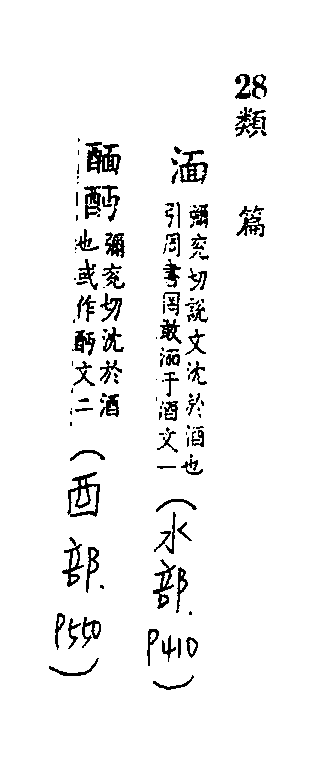 28類篇
湎
彌兗切說文沈於酒也
引周書罔敢湎于酒文一
(水部.P410)
彌兗切沈於酒
也或作 文二
(酉部.P550)